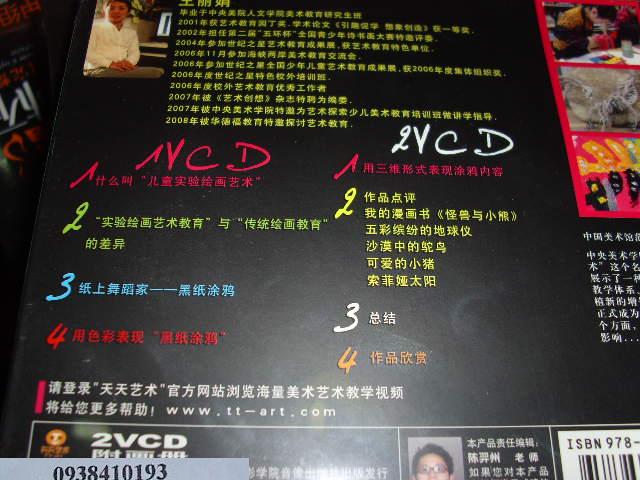 王丽娟
毕业于中央美院人文学院美术教育研究生班
2001年获艺术教育园丁奖,学术论文《引趣促学 想象创造》获一等奖.
2002年担任第二届"五环杯"全国青少年诗书画大赛特邀评委.
2004年参加世纪之星艺术教育成果展,获艺术教育特色单位.
2006年11月参加海峡两岸美术教育交流会.
2006年参加世纪之星全国少年儿童艺术教育成果展,获2006年度集体组织奖.
2006年度世纪之星特色校外培训班.
2006年度校外艺术教育优秀工作者
2007年被《艺术创想》杂志特聘为编委.
2007年被中央美术学院特邀为艺术探索少儿美术教育培训班做讲学指导.
2008年被华德福教育特邀探讨艺术教育.
1VCD
1 什么叫"儿童实验绘画艺术"
2 "实验绘画艺术教育"与"传统绘画教育"
的差异
3 纸上舞蹈家——黑纸涂鸦
4 用色彩表现"黑纸涂鸦"
2VCD
1 用三维形式表现涂鸦内容
2 作品点评
我的漫画书《怪兽与小熊》
五彩缤纷的地球仪
沙漠中的鸵鸟
可爱的小猪
索菲娅太阳
3 总结
4 作品欣赏
请登录"天天艺术"官方网站浏览海量美术艺术教学视频
将给您更多帮助! www.tt-art.com
中国美术馆
中央美术学
术"这个名
展示了一种
教学体系.
植新的增
正式成为
个方面,
影响...
2VCD
附画册
天天艺术
影学院音像出版社出版发行
本产品责任编辑:
陈羿州 老师
如果您对本产品
ISBN 978-
0938410193